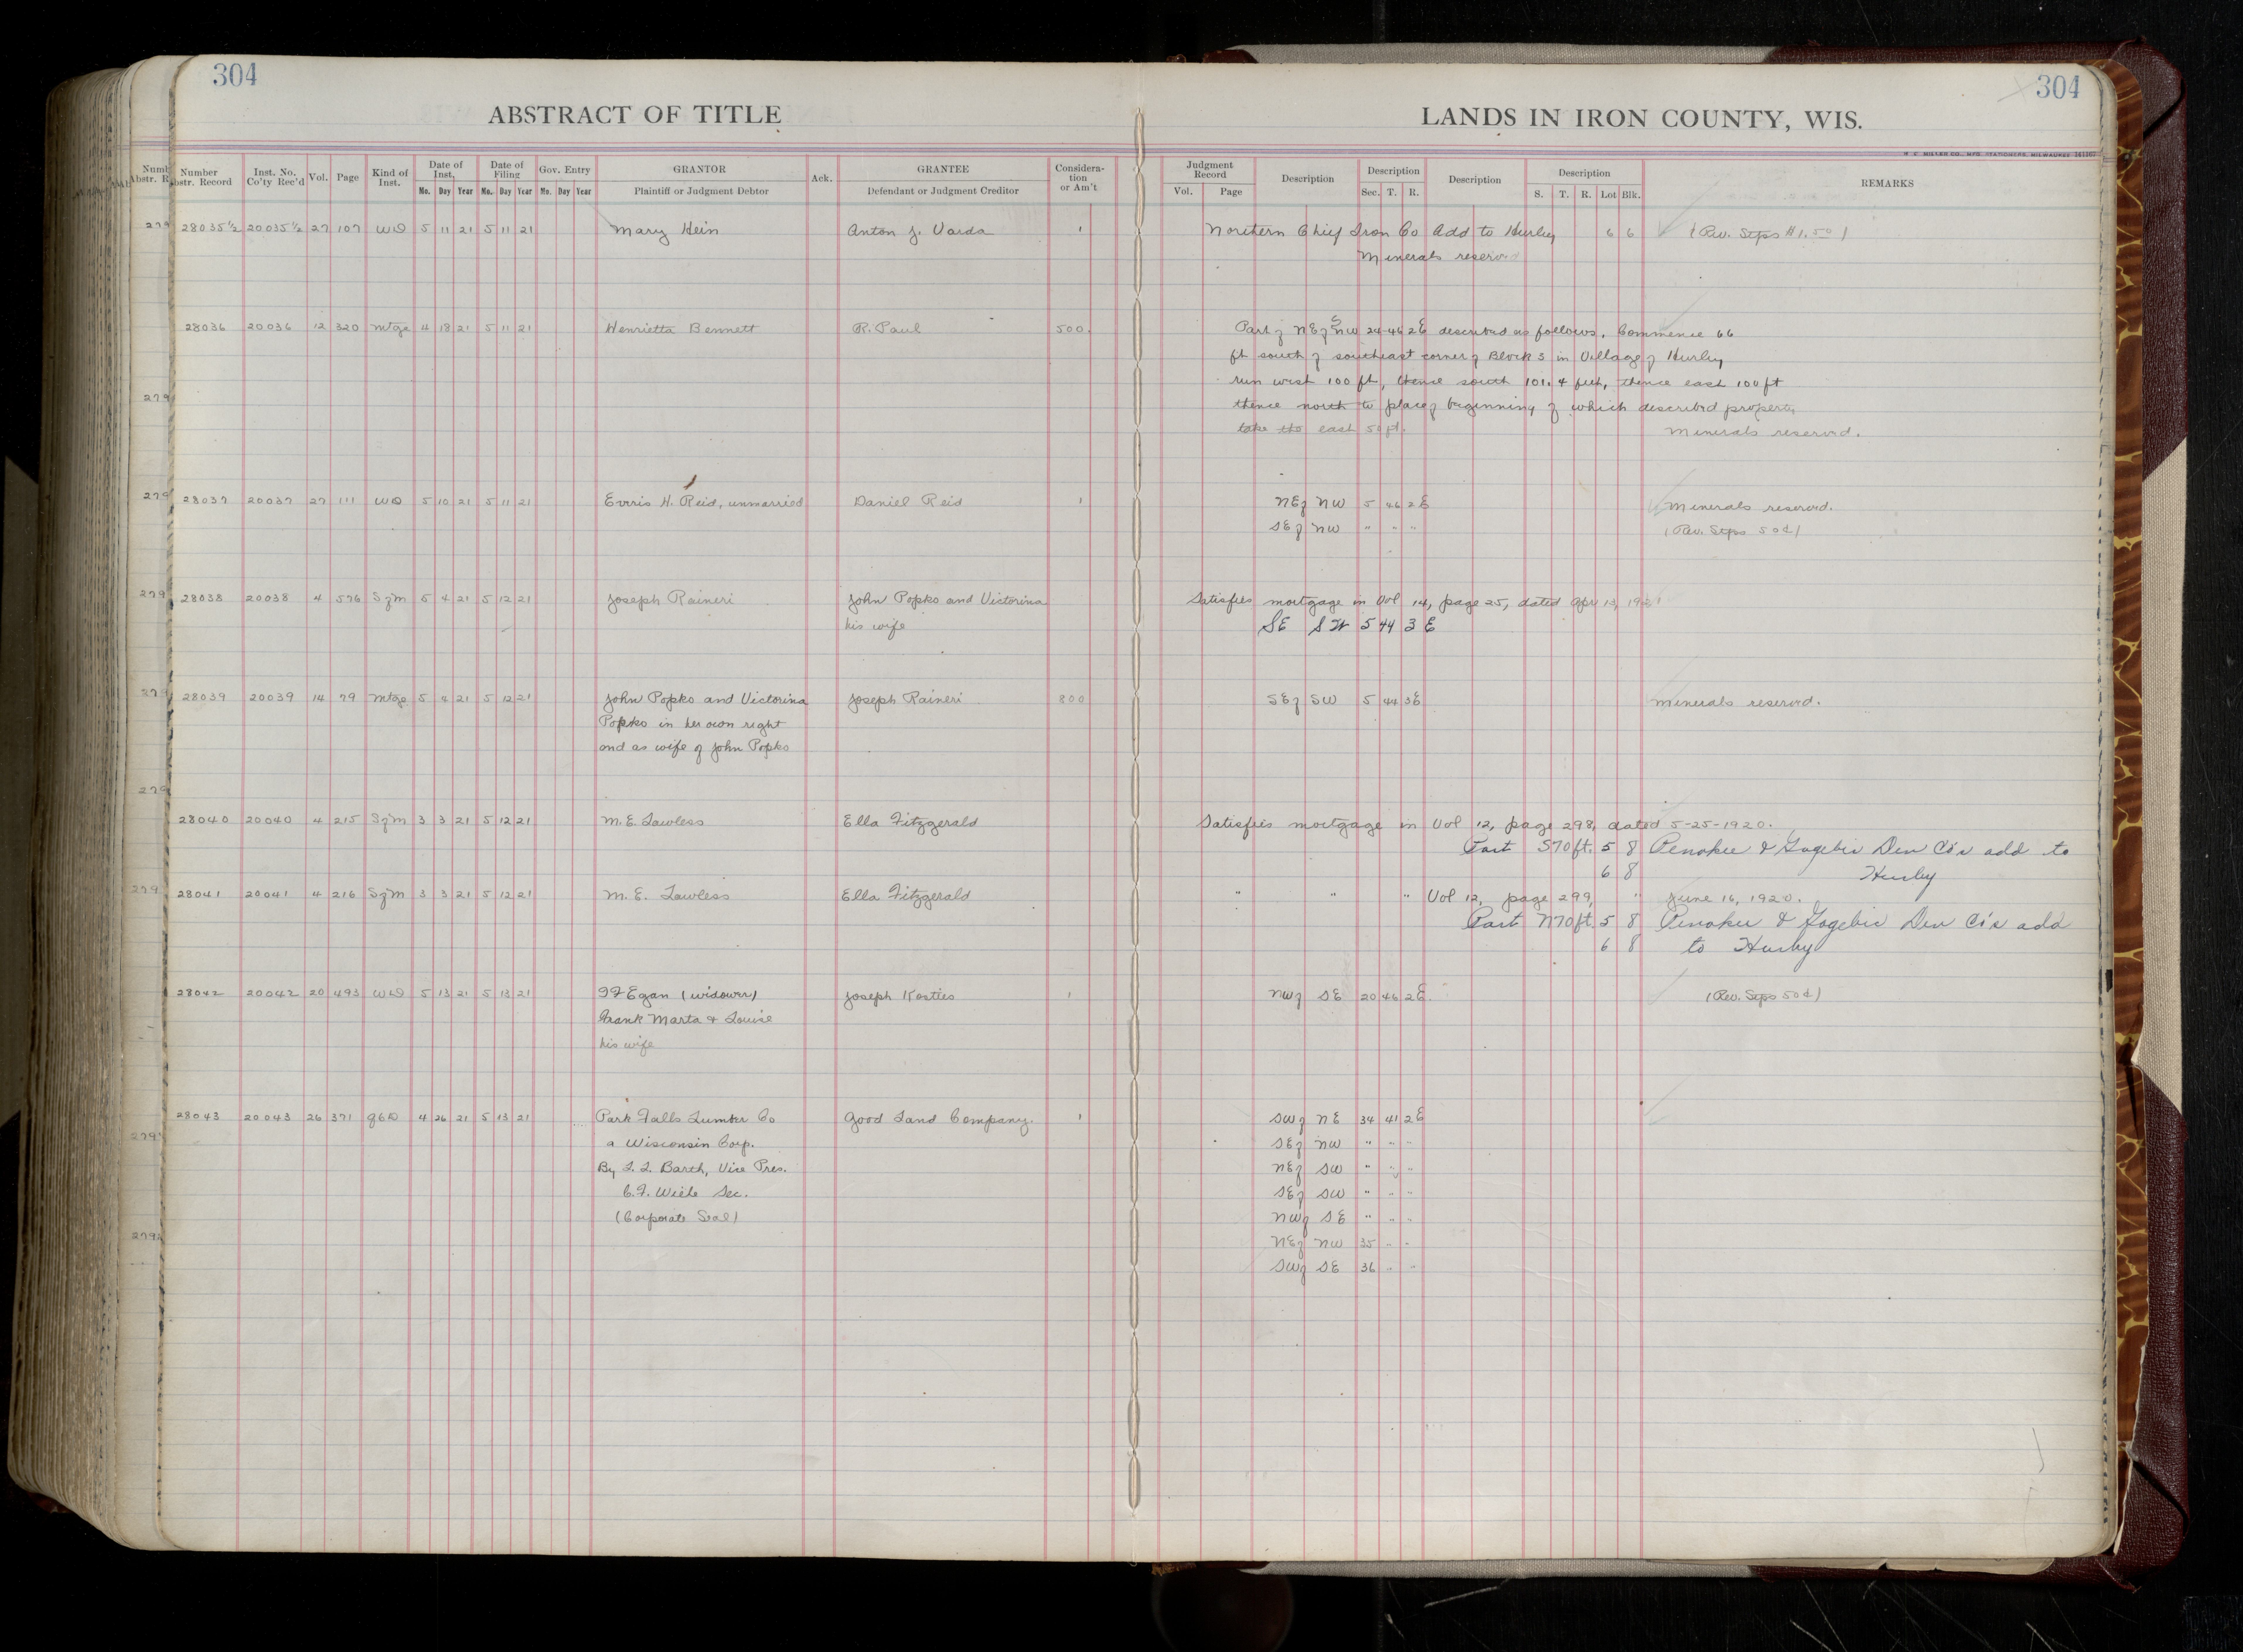 304
304
ABSTRACT OF TITLE
LANDS IN IRON COUNTY, WIS.
Number Abstr. Record Inst. No. Co'ty Rec'd Vol. Page Kind of Inst. Date of Inst. Mo. Day Year Date of Filing Mo. Day Year Gov. Entry Mo. Day Year GRANTOR Plaintiff or Judgment Debtor Ack. GRANTEE Defendant or Judgment Creditor Considera-tion or Am't
Judgment Record Vol. Page Description Description Sec. T. R. Description Description S. T. R. Lot Blk. REMARKS
28035½ 20035½ 27 107 WD 5 11 21 5 11 21 Mary Hein Anton J. Varda 1 Northern Chief Iron Co Add to Hurley 6 6 (Rev. Stps $1.50)
Minerals reserved
28036 20036 12 320 Mtge 4 18 21 5 11 21 Henrietta Bennett R. Paul 500. Part of NE of NW 24-46 2E described as follows. Commence 66
ft south of southeast corner of Block 3 in Village of Hurley
run west 100 ft, thence south 101.4 feet, thence east 100 ft
thence north to place of beginning of which described property
take the east 50 ft. Minerals reserved.
28037 20037 27 111 WD 5 10 21 5 11 21 Everis H. Reid, unmarried Daniel Reid 1 NE of NW 5 46 2E Minerals reserved.
SE of NW " " " (Rev. Stps 50¢)
28038 20038 4 576 S of M 5 4 21 5 12 21 Joseph Raineri John Popko and Victorina Satisfies mortgage in Vol 14, page 25, dated Apr 13,
his wife SE SW 5 44 3 E
28039 20039 14 79 Mtge 5 4 21 5 12 21 John Popko and Victorina Joseph Raineri 800 SE of SW 5 44 3E Minerals reserved.
Popko in her own right
and as wife of John Popko
28040 20040 4 215 S of M 3 3 21 5 12 21 M. E. Lawless Ella Fitzgerald Satisfies mortgage in Vol 12, page 298, dated 5-25-1920.
Part S70ft. 5 8 Penokee & Gogebic Dev Co's add to
6 8 Hurley
28041 20041 4 216 S of M 3 3 21 5 12 21 M. E. Lawless Ella Fitzgerald " " " Vol 12, page 299, " June 16, 1920.
Part N70ft. 5 8 Penokee & Gogebic Dev Co's add
6 8 to Hurley
28042 20042 20 493 WD 5 13 21 5 13 21 Egan (widower) Joseph Kosties 1 NW of SE 20 46 2E (Rev. Stps 50¢)
Frank Marta & Louise
his wife
28043 20043 26 371 4 26 21 5 13 21 Park Falls Lumber Co Good Land Company. 1 SW of NE 34 41 2E
a Wisconsin Corp. SE of NW " " "
By L. L. Barth, Vice Pres. NE of SW " " "
Sec. SE of SW " " "
(Corporate Seal) NW of SE " " "
NE of NW 35 " "
SW of SE 36 " "